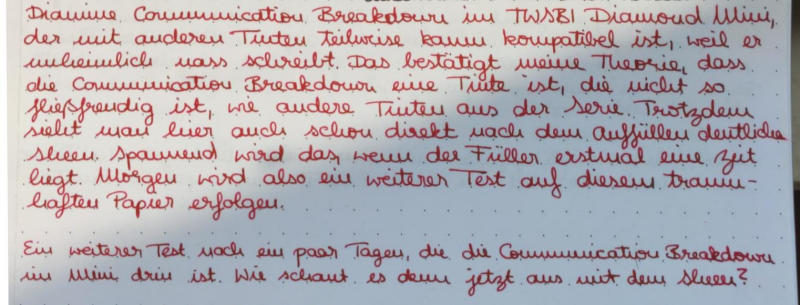 Diamine Communication Breakdown im TWSBI Diamond Mini,
der mit anderen Tinten teilweise kaum kompatibel ist, weil er
unheimlich nass schreibt. Das bestätigt meine Theorie, dass
die Communication Breakdown eine Tinte ist, die nicht so
fließfreudig ist, wie andere Tinten aus der Serie. Trotzdem
sieht man hier auch schon direkt nach dem Auffüllen deutliche
Sheen. Spannend wird das, wenn der Füller erstmal eine Zeit
liegt. Morgen wird also ein weiterer Test auf diesem traum-
haften Papier erfolgen.
Ein weiterer Test nach ein paar Tagen, die die Communication Breakdown
im Mini drin ist. Wie schaut es denn jetzt aus mit dem Sheen?